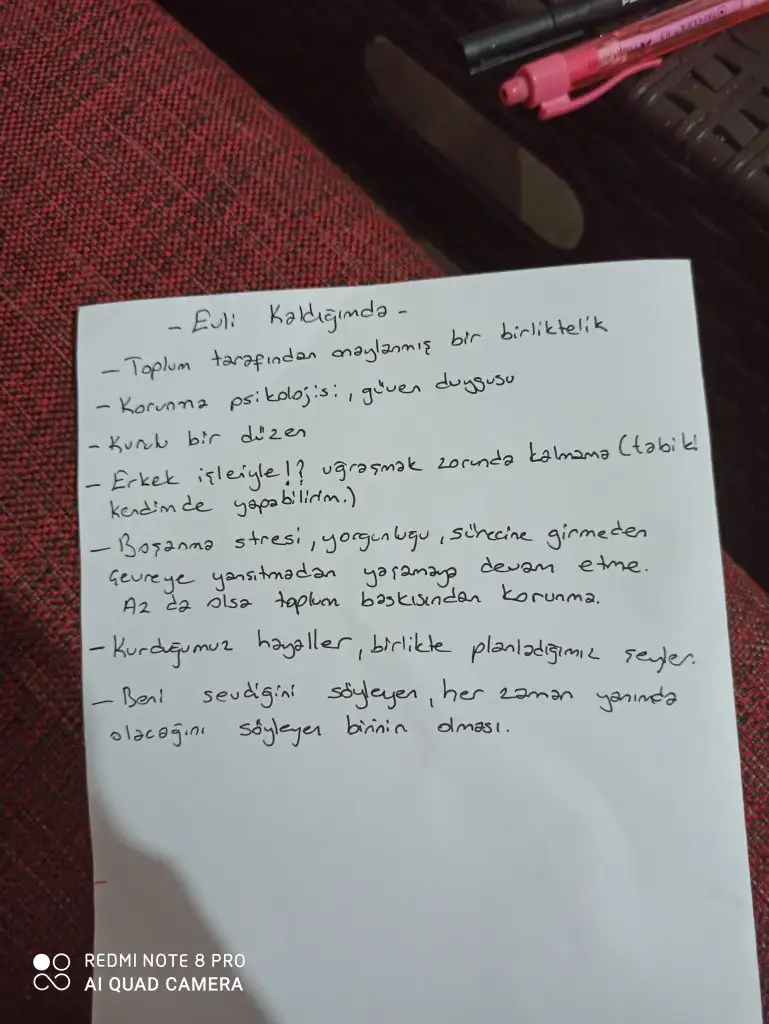 - Evli Kaldığımda -
- Toplum tarafından onaylanmış bir birliktelik
- Korunma psikolojisi, güven duygusu
- Kurulu bir düzen
- Erkek işleriyle!? uğraşmak zorunda kalmama (tabiki
kendimde yapabilirim.)
- Boşanma stresi, yorgunluğu, sürecine girmeden
çevreye yansıtmadan yaşamaya devam etme.
Az da olsa toplum baskısından korunma.
- Kurduğumuz hayaller, birlikte planladığımız şeyler.
- Beni sevdiğini söyleyen, her zaman yanımda
olacağını söyleyen birinin olması.
REDMI NOTE 8 PRO
AI QUAD CAMERA